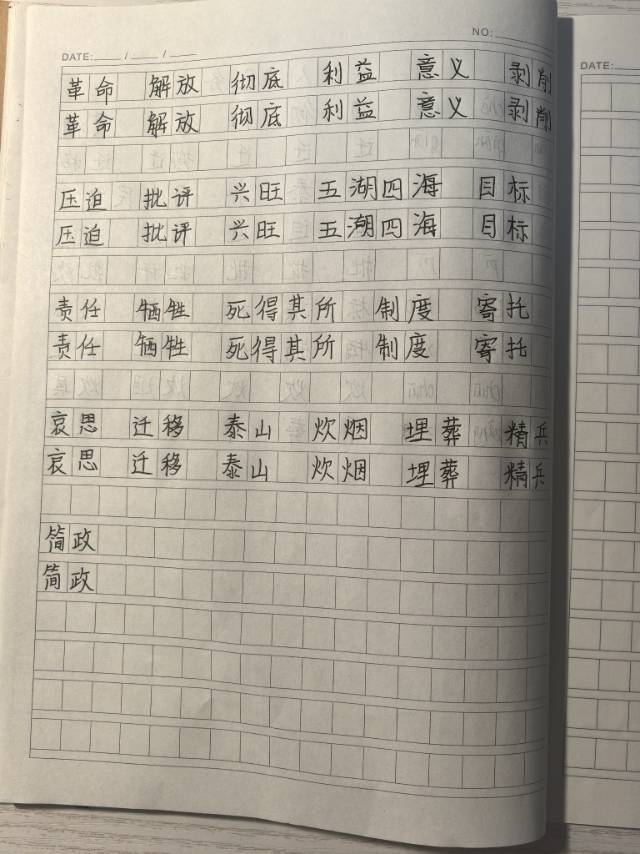 DATE: / /
NO:
革命 解放 彻底 利益 意义 剥削
革命 解放 彻底 利益 意义 剥削
压迫 批评 兴旺 五湖四海 目标
压迫 批评 兴旺 五湖四海 目标
责任 牺牲 死得其所 制度 寄托
责任 牺牲 死得其所 制度 寄托
哀思 迁移 泰山 炊烟 埋葬 精兵
哀思 迁移 泰山 炊烟 埋葬 精兵
简政
简政
DATE: